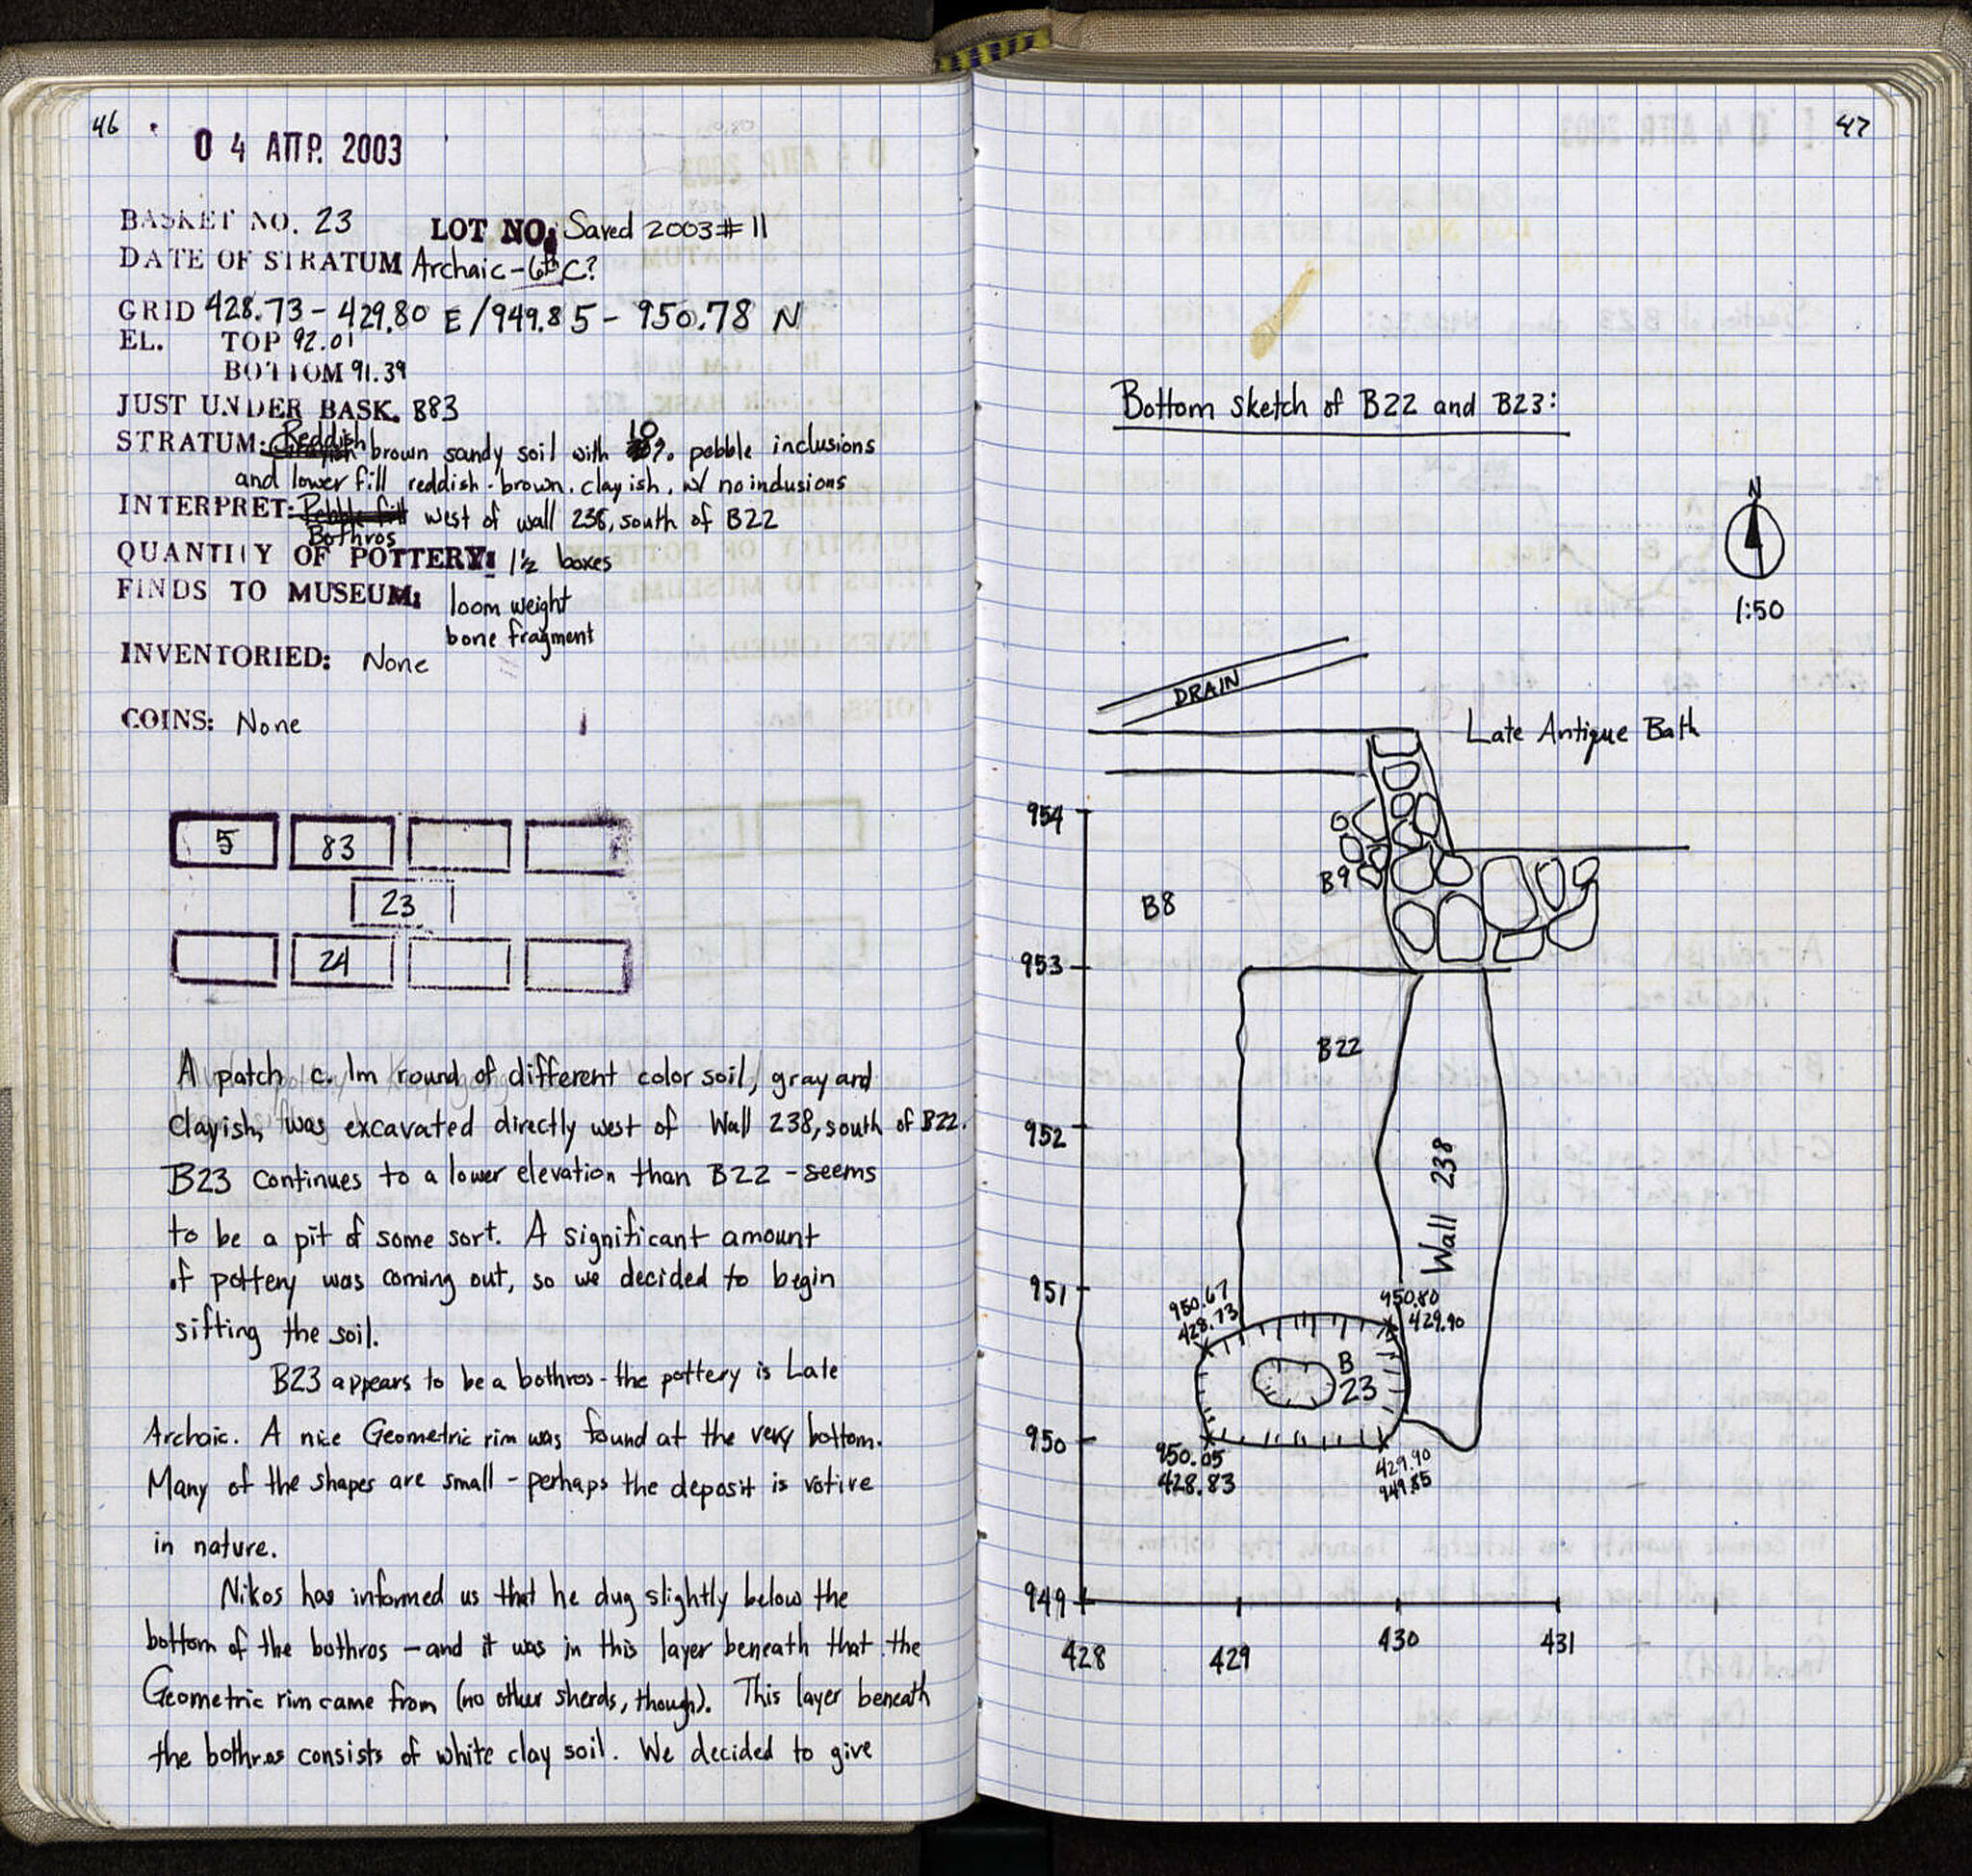 46
0 4 ΑΠΡ. 2003
BASKET NO. 23 LOT NO: Saved 2003#11
DATE OF STRATUM Archaic-6th C?
GRID 428.73-429.80 E/949.85-950.78 N
EL. TOP 92.01
BOTTOM 91.39
JUST UNDER BASK. B83
STRATUM: Reddish brown sandy soil with 10%. pebble inclusions
and lower fill reddish-brown. clayish, w/ no inclusions
INTERPRET: Pebble fill west of wall 238, south of B22
Bothros
QUANTITY OF POTTERY: 1½ boxes
FINDS TO MUSEUM: loom weight
bone fragment
INVENTORIED: None
COINS: None
5 83
23
24
A patch c. 1m round of different color soil, gray and
clayish, was excavated directly west of Wall 238, south of B22.
B23 continues to a lower elevation than B22 - seems
to be a pit of some sort. A significant amount
of pottery was coming out, so we decided to begin
sifting the soil.
B23 appears to be a bothros - the pottery is Late
Archaic. A nice Geometric rim was found at the very bottom.
Many of the shapes are small - perhaps the deposit is votive
in nature.
Nikos has informed us that he dug slightly below the
bottom of the bothros - and it was in this layer beneath that the
Geometric rim came from (no other sherds, though). This layer beneath
the bothros consists of white clay soil. We decided to give
47
Bottom sketch of B22 and B23:
N
1:50
DRAIN
Late Antique Bath
954
B9
B8
953
B22
952
Wall 238
951
950.67
428.73
950.80
429.90
B
23
950
950.05
428.83
429.90
949.85
949
428 429 430 431